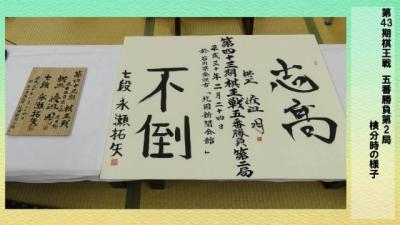 第43期棋王戦 五番勝負第2局
検分時の様子
志高
棋王 渡辺明
第四十三期棋王戦五番勝負第二局
平成三十年二月二十四日
於 石川県金沢市「北國新聞会館」
不倒
七段 永瀬拓矢
第四十三期
棋王戦
七段 永瀬拓矢